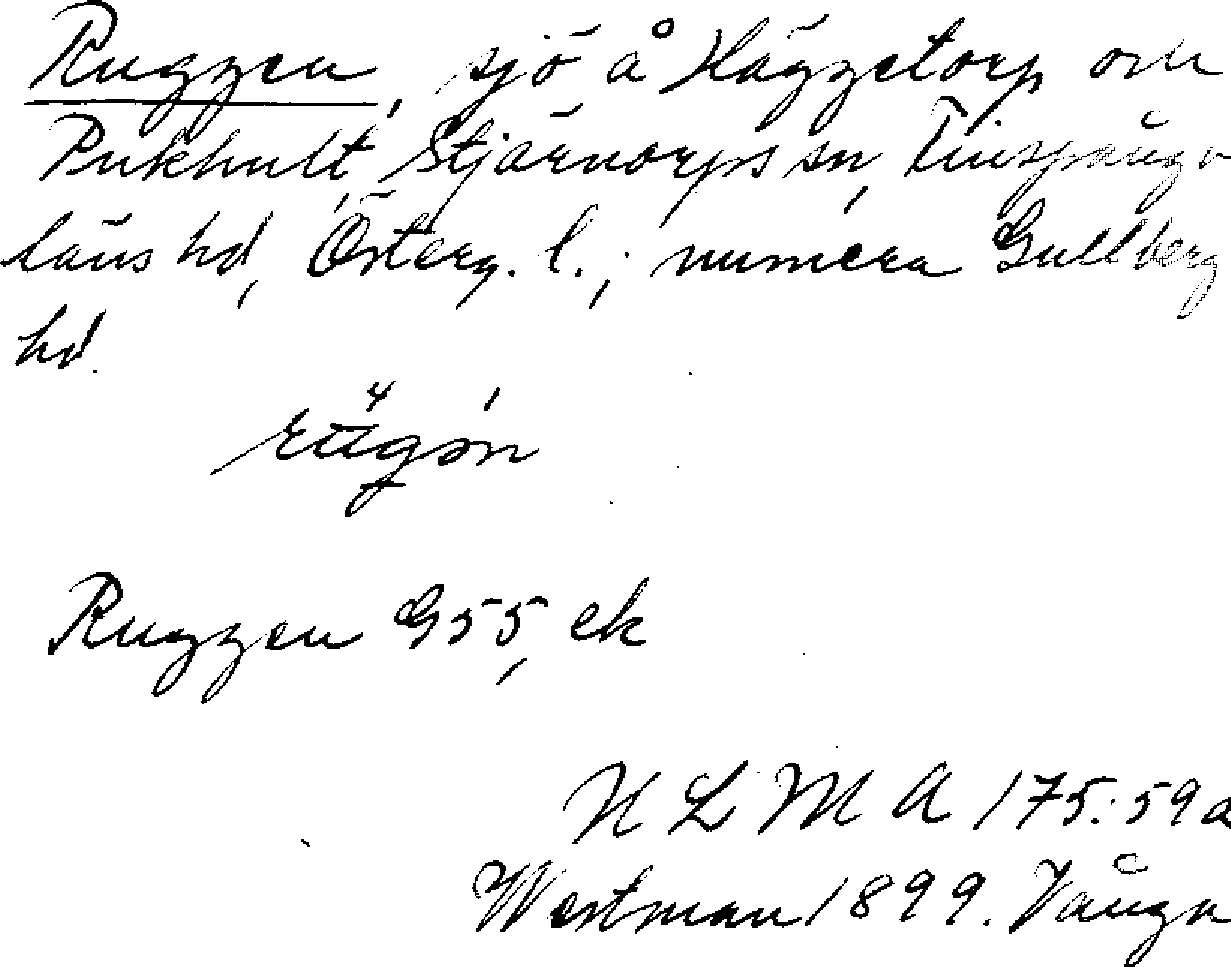 Ruggen, sjö å Häggetorp och
Pukhult, Stjärnorps sn, Finspånga
läns hd, Österg. l.; numera Gullberg
hd.
rugən
Ruggen G55, ek
ULMA 175:59a
Westman 1899. Vånga